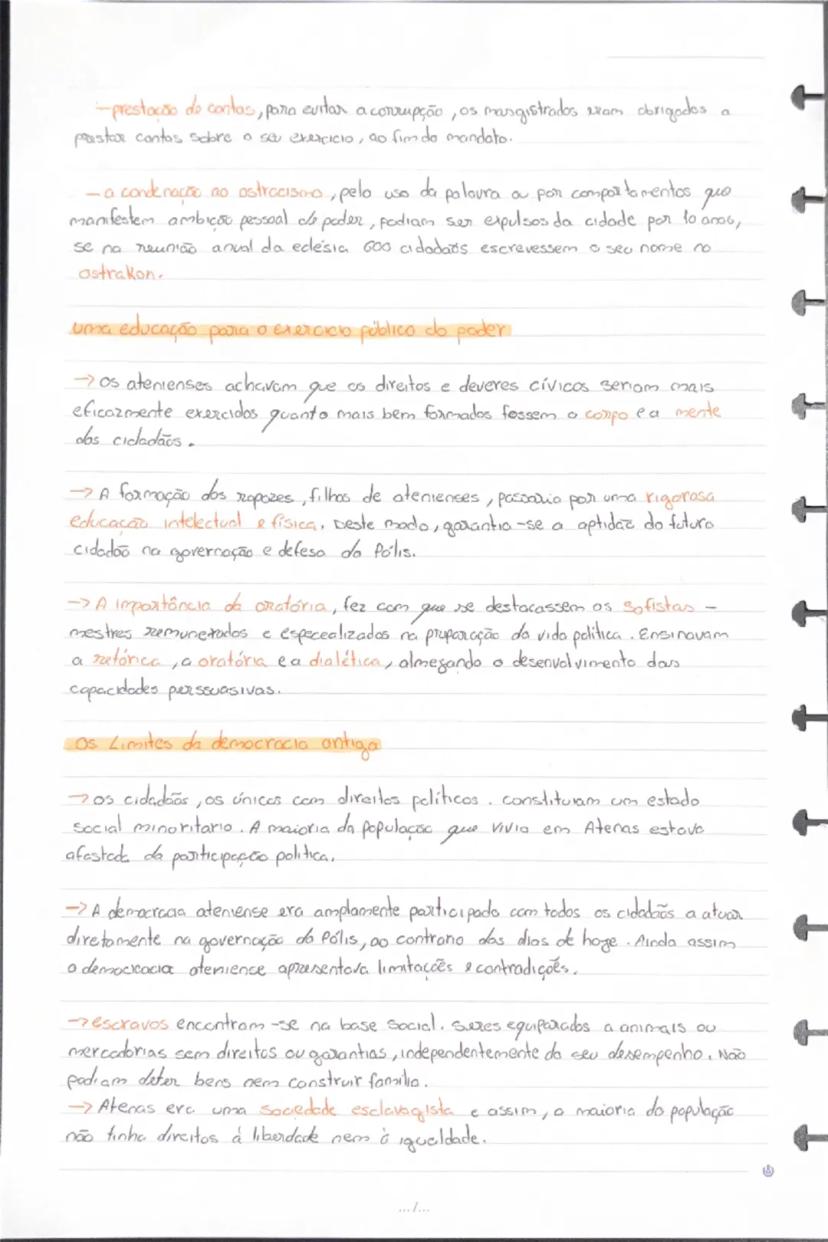 -prestação de contas, para evitar a corrupção, os masgistrados eram obrigados a
prestar contas sobre o seu exercício, ao fim do mandato.
- a condenação ao ostracismo, pelo uso da palavra ou por comportamentos que
manifestem ambição pessoal do poder, podiam ser expulsos da cidade por 10 anos,
se na reunião anual da eclésia 600 cidadaõs escrevessem o seu nome no
ostrakon.
uma educação para o exercício público do poder
→ Os atenienses achavam que os direitos e deveres cívicos seriam mais
eficazmente exercidos quanto mais bem formados fossem o corpo e a mente
dos cidadãos.
→ A formação dos rapazes, filhos de atenienses, passaria por uma rigorosa
educação intelectual e física. Deste modo, garantia-se a aptidaz do futuro
cidadão na governação e defesa da Pólis.
→ A importância da oratória, fez com que se destacassem os sofistas -
mestres remunerados e especealizados na preparação da vida política. Ensinavam
a retórica, a oratória e a dialética, almegando o desenvolvimento das
capacidades perssuasivas.
Os Limites da democracia antiga
→ os cidadaõs, os únicos com direitos políticos. constituiam um estado
social minoritario. A maioria da população que vivia em Atenas estava
afastada da participação politica.
→ A democracia ateniense era amplamente participada com todos os cidadaõs a atuar
diretamente na governação da Pólis, ao contrario dos dias de hoge. Ainda assim
a democracia atenience apresentava limitações e contradições.
→ escravos encontram-se na base social. Seres equiparados a animais ou
mercadorias sem direitos ou garantias, independentemente do seu desempenho. Não
podiam deter bens nem construir família.
→ Atenas era uma sociedade esclavagista e assim, a maioria da população
não tinha direitos á liberdade nem à igualdade.
.../...